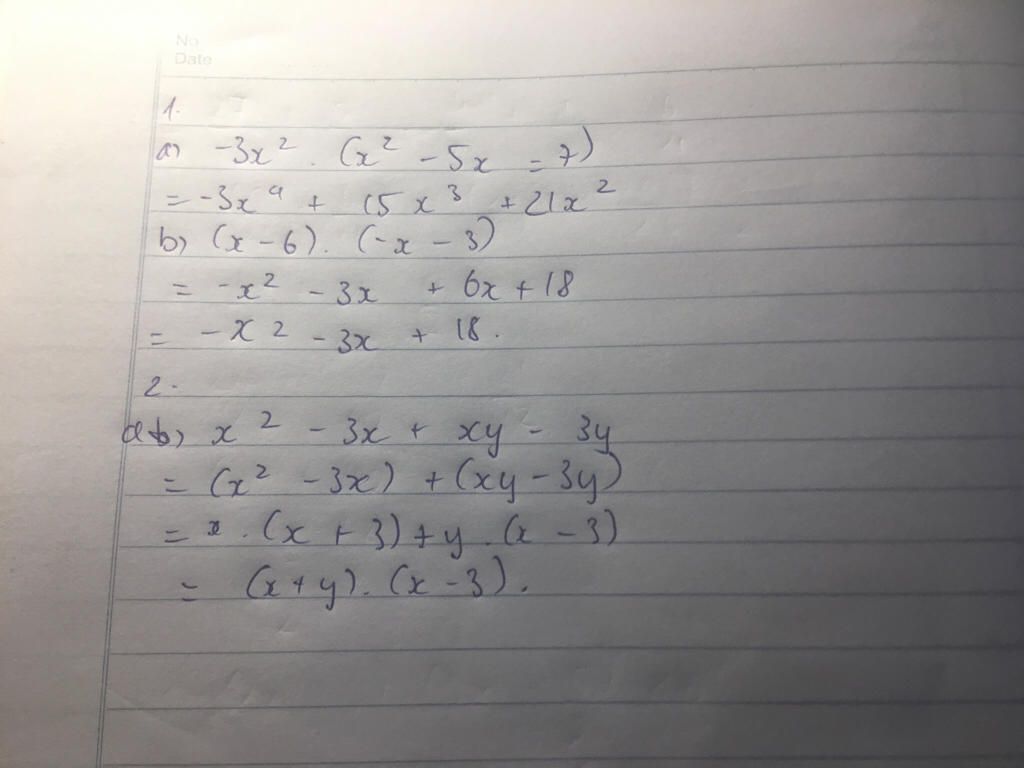 No
Date
1.
a) -3x² . (x² - 5x - 7)
= -3x⁴ + 15x³ + 21x²
b) (x - 6). (-x - 3)
= -x² - 3x + 6x + 18
= -x² - 3x + 18.
2.
b) x² - 3x + xy - 3y
= (x² - 3x) + (xy - 3y)
= x . (x + 3) + y . (x - 3)
= (x + y). (x - 3).